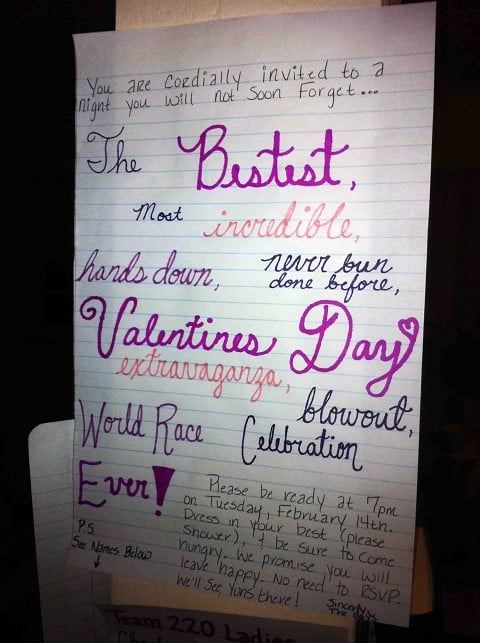 You are cordially invited to a
night you will not soon forget...
The Bestest,
Most incredible,
hands down, never bun
done before,
Valentines Day
extravaganza,
blowout,
World Race Celebration
Ever!
Please be ready at 7pm
on Tuesday, February 14th.
Dress in your best (please
shower), & be sure to come
hungry. We promise you will
leave happy. No need to RSVP.
We'll see yuns there!
Sincerly,
The
P.S.
See Names Below
↓
Team 220 Ladies